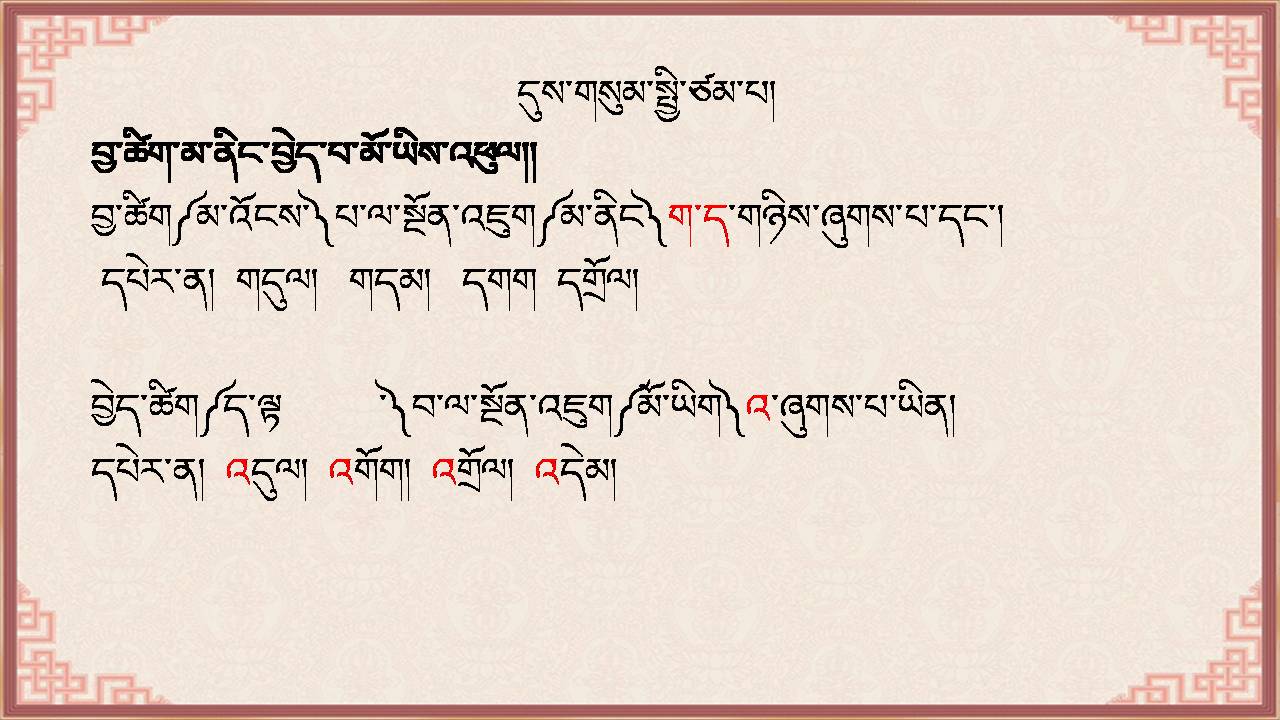 དུས་གསུམ་སྤྱི་ཙམ་པ།
བྱ་ཚིག་མ་ནིང་བྱེད་པ་མོ་ཡིས་འཕུལ།།
བྱ་ཚིག༼མ་འོངས་༽པ་ལ་སྔོན་འཇུག༼མ་ནིང༽ག་ད་གཉིས་ཞུགས་པ་དང་།
དཔེར་ན། གདུལ། གདམ། དགག དགྲོལ།
བྱེད་ཚིག༼ད་ལྟ ་༽བ་ལ་སྔོན་འཇུག༼མོ་ཡིག༽འ་ཞུགས་པ་ཡིན།
དཔེར་ན། འདུལ། འགོག། འགྲོལ། འདེམ།